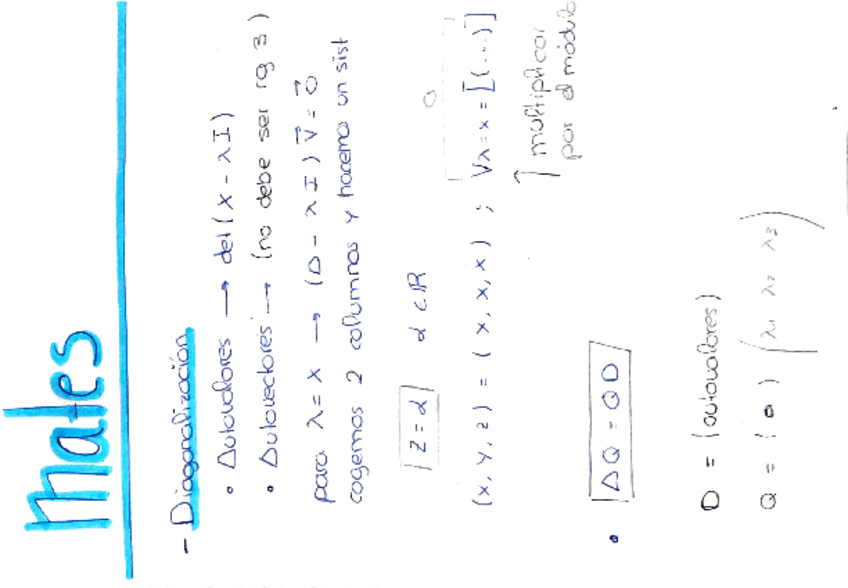 Mates
- Diagonalización
• Autovalores → det(X - λI)
• Autovectores → (no debe ser rg 3)
para λ = x → (A - λI) V⃗ = 0⃗
cogemos 2 columnas y hacemos un sist
Z = α α ∈ ℝ
(x, y, z) = (x, x, x) ; Vλ=x = [(...)]
↑ multiplicar
por el módulo
• AQ = QD
D = (autovalores)
Q = ( ) (λ1 λ2 λ3)